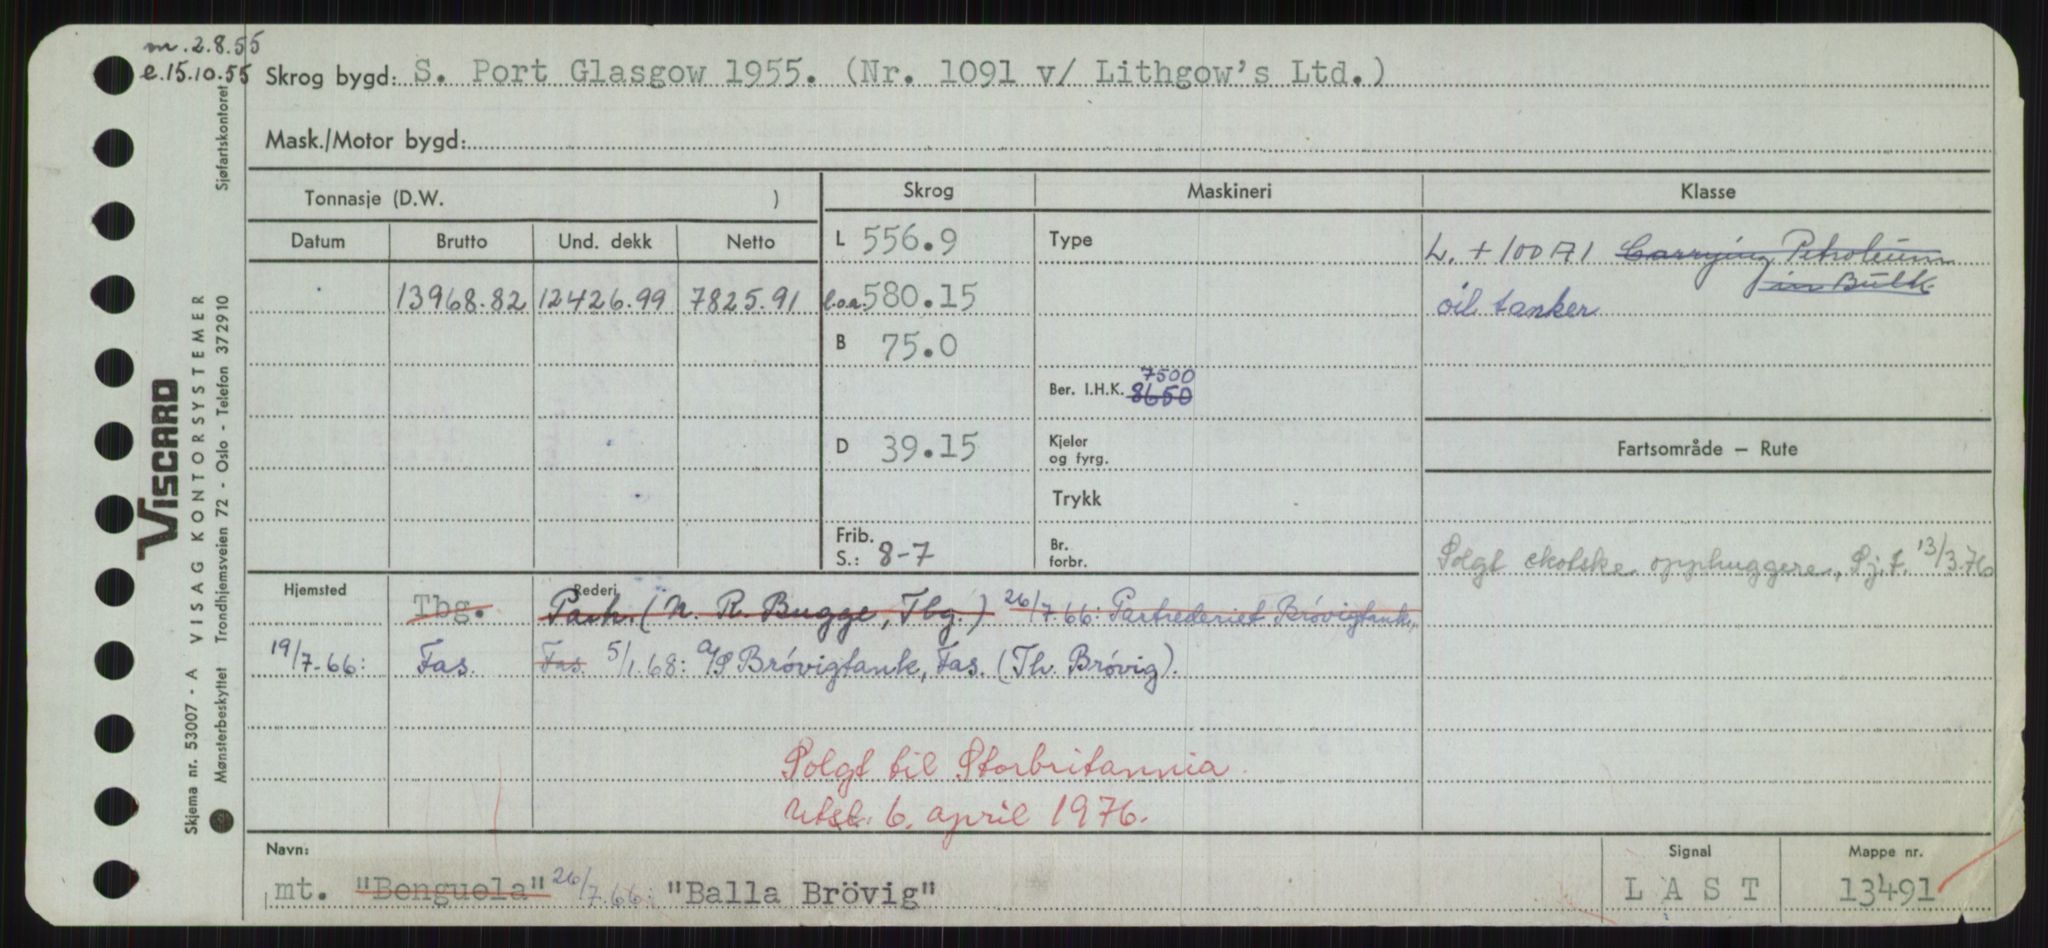 m. 2.8.55
e. 15.10.55
Skrog bygd: S. Port Glasgow 1955. (Nr. 1091 v/ Lithgow's Ltd.)
Mask./Motor bygd:
Tonnasje (D.W. )
Skrog Maskineri Klasse
Datum Brutto Und. dekk Netto
L 556.9 Type L. + 100 A1 Carrying Petroleum
in Bulk
13968.82 12426.99 7825.91 l.o.a. 580.15 oil tanker
B 75.0
7500
Ber. I.H.K. 8650
D 39.15 Kjeler
og fyrg. Fartsområde – Rute
Trykk
Frib.
S.: 8-7 Br.
forbr. Solgt skotske opphuggere, Sj.f. 13/3.76
Hjemsted Rederi
Tbg. Partr. (N. R. Bugge, Tbg.) 26/7.66: Partrederiet Brövigtank,
19/7.66: Fas. Fas. 5/1.68: A/S Brövigtank, Fas. (Th. Brövig).
Solgt til Storbritannia.
Utsl. 6. april 1976.
Navn: Signal Mappe nr.
mt. "Benguela" 26/7.66: "Balla Brövig" L A S T 13491
VISCARD
Skjema nr. 53007 - A VISAG KONTORSYSTEMER
Mønsterbeskyttet Trondhjemsveien 72 - Oslo - Telefon 372910 Sjøfartskontoret